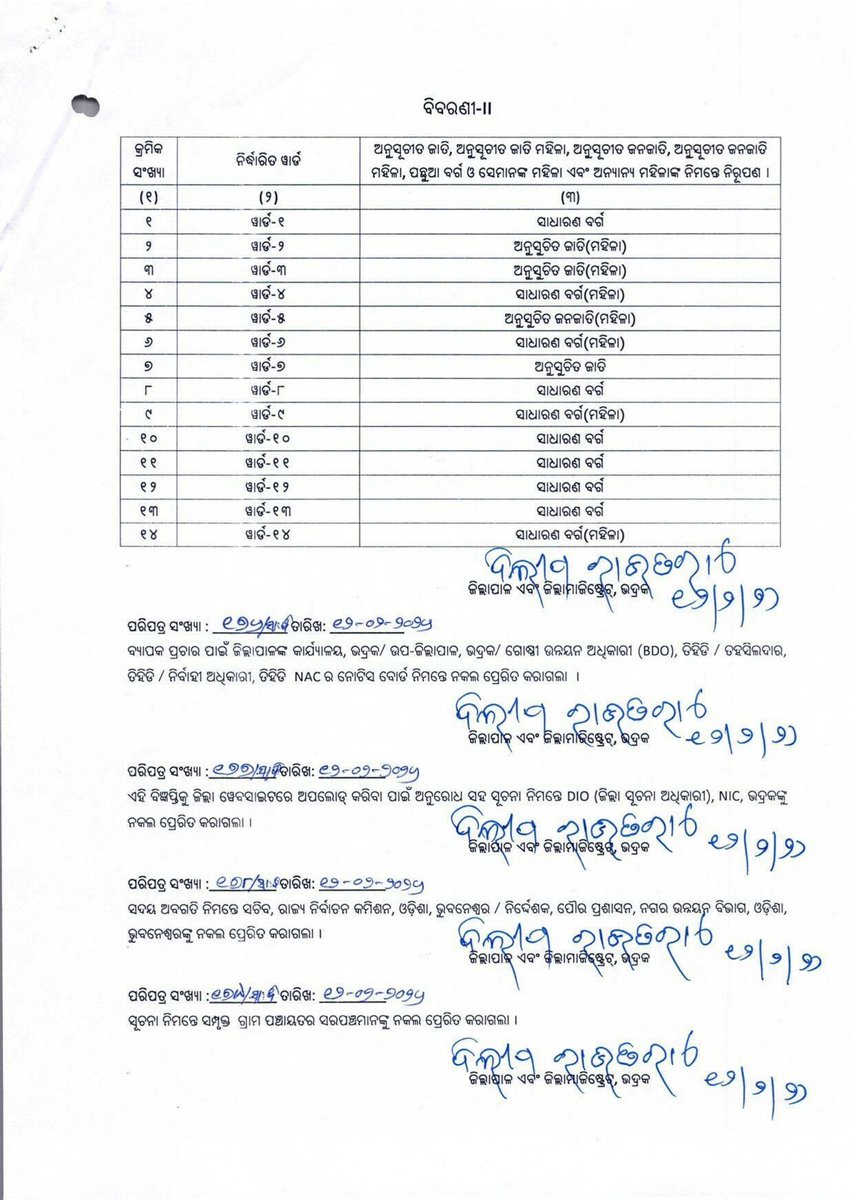 ବିବରଣୀ-II
କ୍ରମିକ ସଂଖ୍ୟା ନିର୍ଦ୍ଧାରିତ ୱାର୍ଡ ଅନୁସୂଚୀତ ଜାତି, ଅନୁସୂଚୀତ ଜାତି ମହିଳା, ଅନୁସୂଚୀତ ଜନଜାତି, ଅନୁସୂଚୀତ ଜନଜାତି
ମହିଳା, ପଛୁଆ ବର୍ଗ ଓ ସେମାନଙ୍କ ମହିଳା ଏବଂ ଅନ୍ୟାନ୍ୟ ମହିଳାଙ୍କ ନିମନ୍ତେ ନିରୂପଣ ।
(୧) (୨) (୩)
୧ ୱାର୍ଡ-୧ ସାଧାରଣ ବର୍ଗ
୨ ୱାର୍ଡ-୨ ଅନୁସୁଚିତ ଜାତି(ମହିଳା)
୩ ୱାର୍ଡ-୩ ଅନୁସୁଚିତ ଜାତି(ମହିଳା)
୪ ୱାର୍ଡ-୪ ସାଧାରଣ ବର୍ଗ(ମହିଳା)
୫ ୱାର୍ଡ-୫ ଅନୁସୁଚିତ ଜନଜାତି(ମହିଳା)
୬ ୱାର୍ଡ-୬ ସାଧାରଣ ବର୍ଗ(ମହିଳା)
୭ ୱାର୍ଡ-୭ ଅନୁସୁଚିତ ଜାତି
୮ ୱାର୍ଡ-୮ ସାଧାରଣ ବର୍ଗ
୯ ୱାର୍ଡ-୯ ସାଧାରଣ ବର୍ଗ(ମହିଳା)
୧୦ ୱାର୍ଡ-୧୦ ସାଧାରଣ ବର୍ଗ
୧୧ ୱାର୍ଡ-୧୧ ସାଧାରଣ ବର୍ଗ
୧୨ ୱାର୍ଡ-୧୨ ସାଧାରଣ ବର୍ଗ
୧୩ ୱାର୍ଡ-୧୩ ସାଧାରଣ ବର୍ଗ
୧୪ ୱାର୍ଡ-୧୪ ସାଧାରଣ ବର୍ଗ(ମହିଳା)
ଜିଲ୍ଲାପାଳ ଏବଂ ଜିଲ୍ଲାମାଜିଷ୍ଟ୍ରେଟ୍, ଭଦ୍ରକ
ପରିପତ୍ର ସଂଖ୍ୟା : ତାରିଖ:
ବ୍ୟାପକ ପ୍ରଚାର ପାଇଁ ଜିଲ୍ଲାପାଳଙ୍କ କାର୍ଯ୍ୟାଳୟ, ଭଦ୍ରକ/ ଉପ-ଜିଲ୍ଲାପାଳ, ଭଦ୍ରକ/ ଗୋଷ୍ଠୀ ଉନ୍ନୟନ ଅଧିକାରୀ (BDO), ତିହିଡି / ତହସିଲଦାର,
ତିହିଡି / ନିର୍ବାହୀ ଅଧିକାରୀ, ତିହିଡି NAC ର ନୋଟିସ ବୋର୍ଡ ନିମନ୍ତେ ନକଲ ପ୍ରେରିତ କରାଗଲା ।
ଜିଲ୍ଲାପାଳ ଏବଂ ଜିଲ୍ଲାମାଜିଷ୍ଟ୍ରେଟ୍, ଭଦ୍ରକ
ପରିପତ୍ର ସଂଖ୍ୟା : ତାରିଖ:
ଏହି ବିଜ୍ଞପ୍ତିକୁ ଜିଲ୍ଲା ୱେବସାଇଟରେ ଅପଲୋଡ୍ କରିବା ପାଇଁ ଅନୁରୋଧ ସହ ସୂଚନା ନିମନ୍ତେ DIO (ଜିଲ୍ଲା ସୂଚନା ଅଧିକାରୀ), NIC, ଭଦ୍ରକଙ୍କୁ
ନକଲ ପ୍ରେରିତ କରାଗଲା ।
ଜିଲ୍ଲାପାଳ ଏବଂ ଜିଲ୍ଲାମାଜିଷ୍ଟ୍ରେଟ୍, ଭଦ୍ରକ
ପରିପତ୍ର ସଂଖ୍ୟା : ତାରିଖ:
ସଦୟ ଅବଗତି ନିମନ୍ତେ ସଚିବ, ରାଜ୍ୟ ନିର୍ବାଚନ କମିଶନ, ଓଡ଼ିଶା, ଭୁବନେଶ୍ୱର / ନିର୍ଦ୍ଦେଶକ, ପୌର ପ୍ରଶାସନ, ନଗର ଉନ୍ନୟନ ବିଭାଗ, ଓଡ଼ିଶା,
ଭୁବନେଶ୍ୱରଙ୍କୁ ନକଲ ପ୍ରେରିତ କରାଗଲା ।
ଜିଲ୍ଲାପାଳ ଏବଂ ଜିଲ୍ଲାମାଜିଷ୍ଟ୍ରେଟ୍, ଭଦ୍ରକ
ପରିପତ୍ର ସଂଖ୍ୟା : ତାରିଖ:
ସୂଚନା ନିମନ୍ତେ ସମ୍ପୃକ୍ତ ଗ୍ରାମ ପଞ୍ଚାୟତର ସରପଞ୍ଚମାନଙ୍କୁ ନକଲ ପ୍ରେରିତ କରାଗଲା ।
ଜିଲ୍ଲାପାଳ ଏବଂ ଜିଲ୍ଲାମାଜିଷ୍ଟ୍ରେଟ୍, ଭଦ୍ରକ